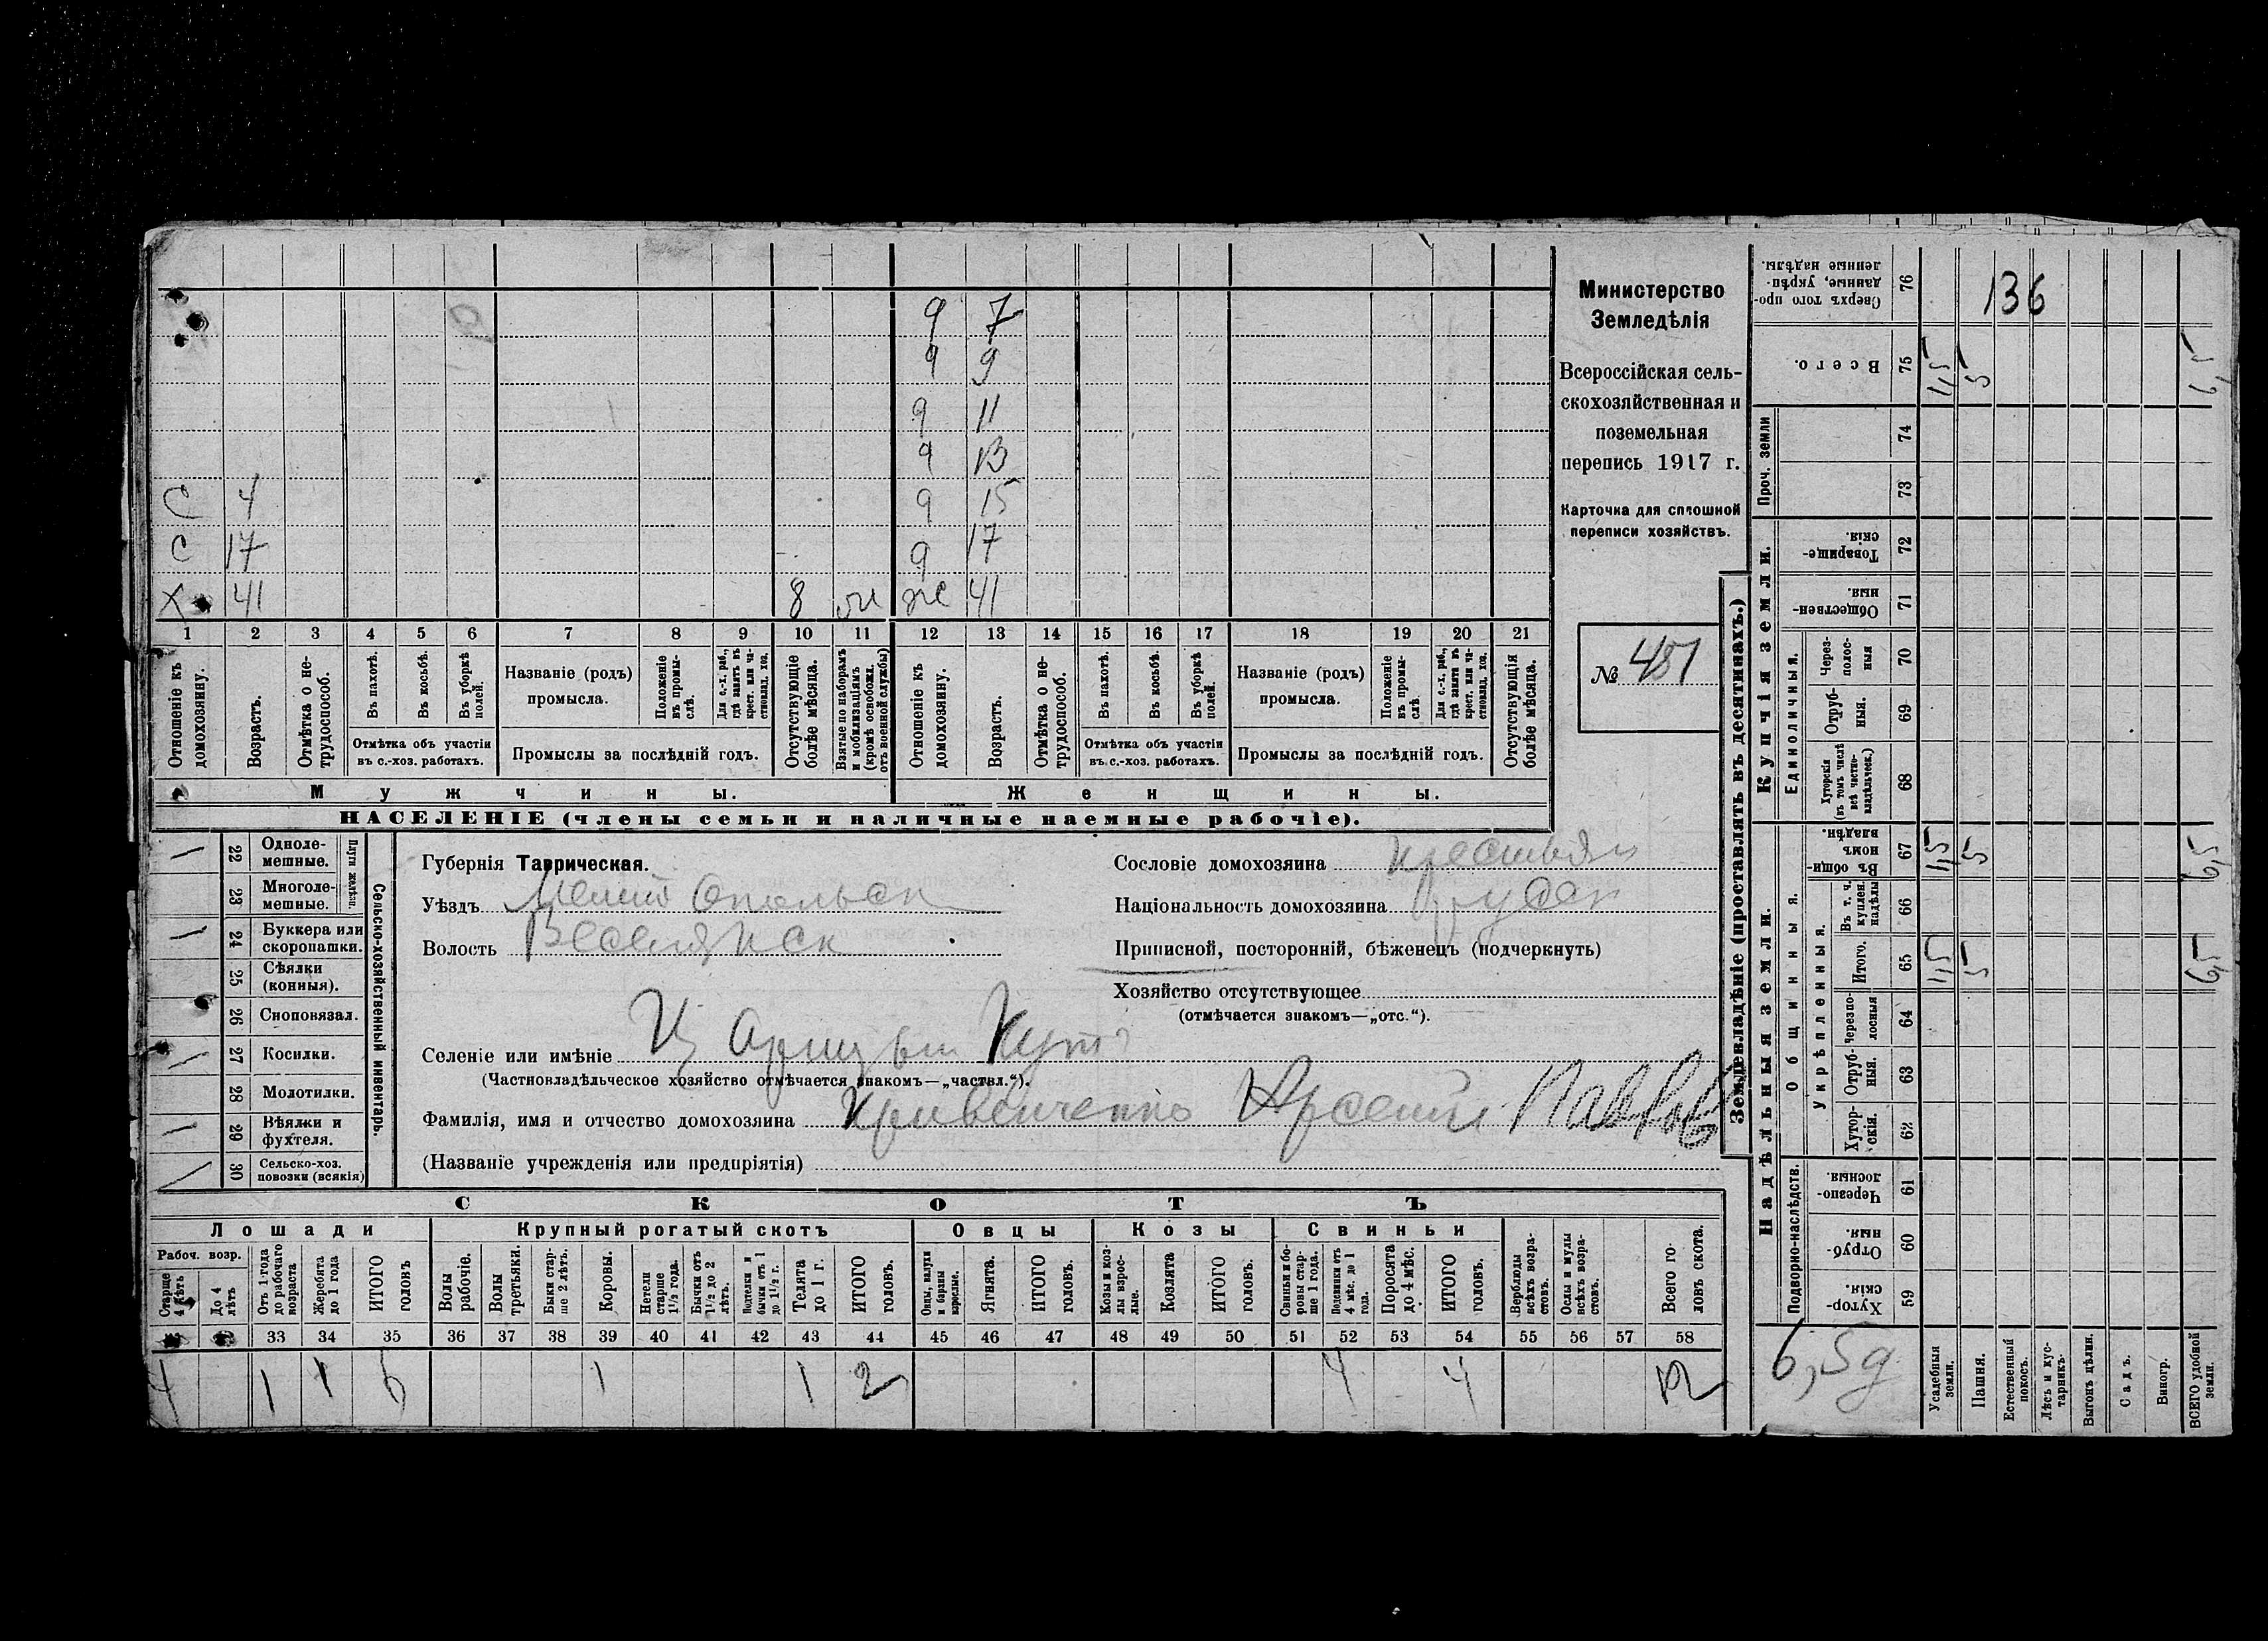 9 7
9 9
9 11
9 13
С 4 9 15
С 17 9 17
Х 41 8 же 41
1 2 3 4 5 6 7 8 9 10 11 12 13 14 15 16 17 18 19 20 21
Отношеніе къ домохозяину.
Возрастъ.
Отмѣтка о нетрудоспособ.
Въ пахотѣ.
Въ косьбѣ.
Въ уборкѣ полей.
Отмѣтка объ участіи
въ с.-хоз. работахъ.
Названіе (родъ)
промысла.
Положеніе въ промыслѣ.
Для с.-х. раб., гдѣ занятъ въ крест. или частновлад. хоз.
Промыслы за послѣдній годъ.
Отсутствующіе болѣе мѣсяца.
Взятые по наборамъ и мобилизаціямъ (кромѣ освобожд. отъ военной службы)
Отношеніе къ домохозяину.
Возрастъ.
Отмѣтка о нетрудоспособ.
Въ пахотѣ.
Въ косьбѣ.
Въ уборкѣ полей.
Отмѣтка объ участіи
въ с.-хоз. работахъ.
Названіе (родъ)
промысла.
Положеніе въ промыслѣ.
Для с.-х. раб., гдѣ занятъ въ крест. или частновлад. хоз.
Промыслы за послѣдній годъ.
Отсутствующія болѣе мѣсяца.
Мужчины. Женщины.
НАСЕЛЕНІЕ (члены семьи и наличные наемные рабочіе).
Министерство
Земледѣлія
Всероссійская сель-
скохозяйственная и
поземельная
перепись 1917 г.
Карточка для сплошной
переписи хозяйствъ.
№ 481
Сельско-хозяйственный инвентарь.
Плуги желѣзн.
22 Одноле-
мешные.
23 Многоле-
мешные.
24 Буккера или
скоропашки.
25 Сѣялки
(конныя).
26 Сноповязал.
27 Косилки.
28 Молотилки.
29 Вѣялки и
фухтеля.
30 Сельско-хоз.
повозки (всякія)
Губернія Таврическая.
Уѣздъ Мелитопольск
Волость Веселянск
Селеніе или имѣніе Царицын Кутъ
(Частновладѣльческое хозяйство отмѣчается знакомъ—„частвл.“).
Фамилія, имя и отчество домохозяина Кривенченко Арсений Павлов
(Названіе учрежденія или предпріятія)
Сословіе домохозяина крестьян
Національность домохозяина русск
Приписной, посторонній, бѣженецъ (подчеркнуть)
Хозяйство отсутствующее
(отмѣчается знакомъ—„отс.“).
СКОТЪ
Лошади Крупный рогатый скотъ Овцы Козы Свиньи
Рабоч. возр.
Старше 4 лѣтъ
До 4 лѣтъ
Отъ 1 года до рабочаго возраста
Жеребята до 1 года
ИТОГО головъ
Волы рабочіе.
Волы третьяки.
Быки старше 2 лѣтъ.
Коровы.
Нетели старше 1½ года.
Бычки отъ 1½ до 2 лѣтъ.
Подтелки и бычки отъ 1 до 1½ г.
Телята до 1 г.
ИТОГО головъ.
Овцы, валухи и бараны взрослые.
Ягнята.
ИТОГО головъ.
Козы и козлы взрослые.
Козлята
ИТОГО головъ.
Свиньи и боровы старше 1 года.
Подсвинки отъ 4 мѣс. до 1 года.
Поросята до 4 мѣс.
ИТОГО головъ.
Верблюды всѣхъ возрастовъ.
Ослы и мулы всѣхъ возрастовъ.
Всего головъ скота.
33 34 35 36 37 38 39 40 41 42 43 44 45 46 47 48 49 50 51 52 53 54 55 56 57 58
4 1 1 6 1 1 2 4 4 12
Землевладѣніе (проставлять въ десятинахъ.)
Надѣльныя земли. Купчія земли. Проч. земли
Подворно-наслѣдств. Общинныя. Укрѣпленныя. Единоличныя.
Хуторскія. 59
Отрубныя. 60
Черезполосныя. 61
Хуторскія. 62
Отрубныя. 63
Черезполосныя 64
Итого. 65 1,5 5 6,5
Въ т. ч. куплен. надѣлы 66
Въ общинномъ владѣн. 67 1,5 5 6,5
Хуторскія (въ томъ числѣ всѣ частновладѣльческ.) 68
Отрубныя. 69
Черезполосныя 70
Общественныя. 71
Товарищескія. 72
73
74
Всего. 75 1,5 5 6,5
Сверхъ того проданные, укрѣпленные надѣлы. 76
136
6,5 д
Усадебныя земли.
Пашня.
Естественный покосъ.
Лѣсъ и кустарникъ.
Выгонъ цѣлин.
Садъ.
Виногр.
ВСЕГО удобной земли.